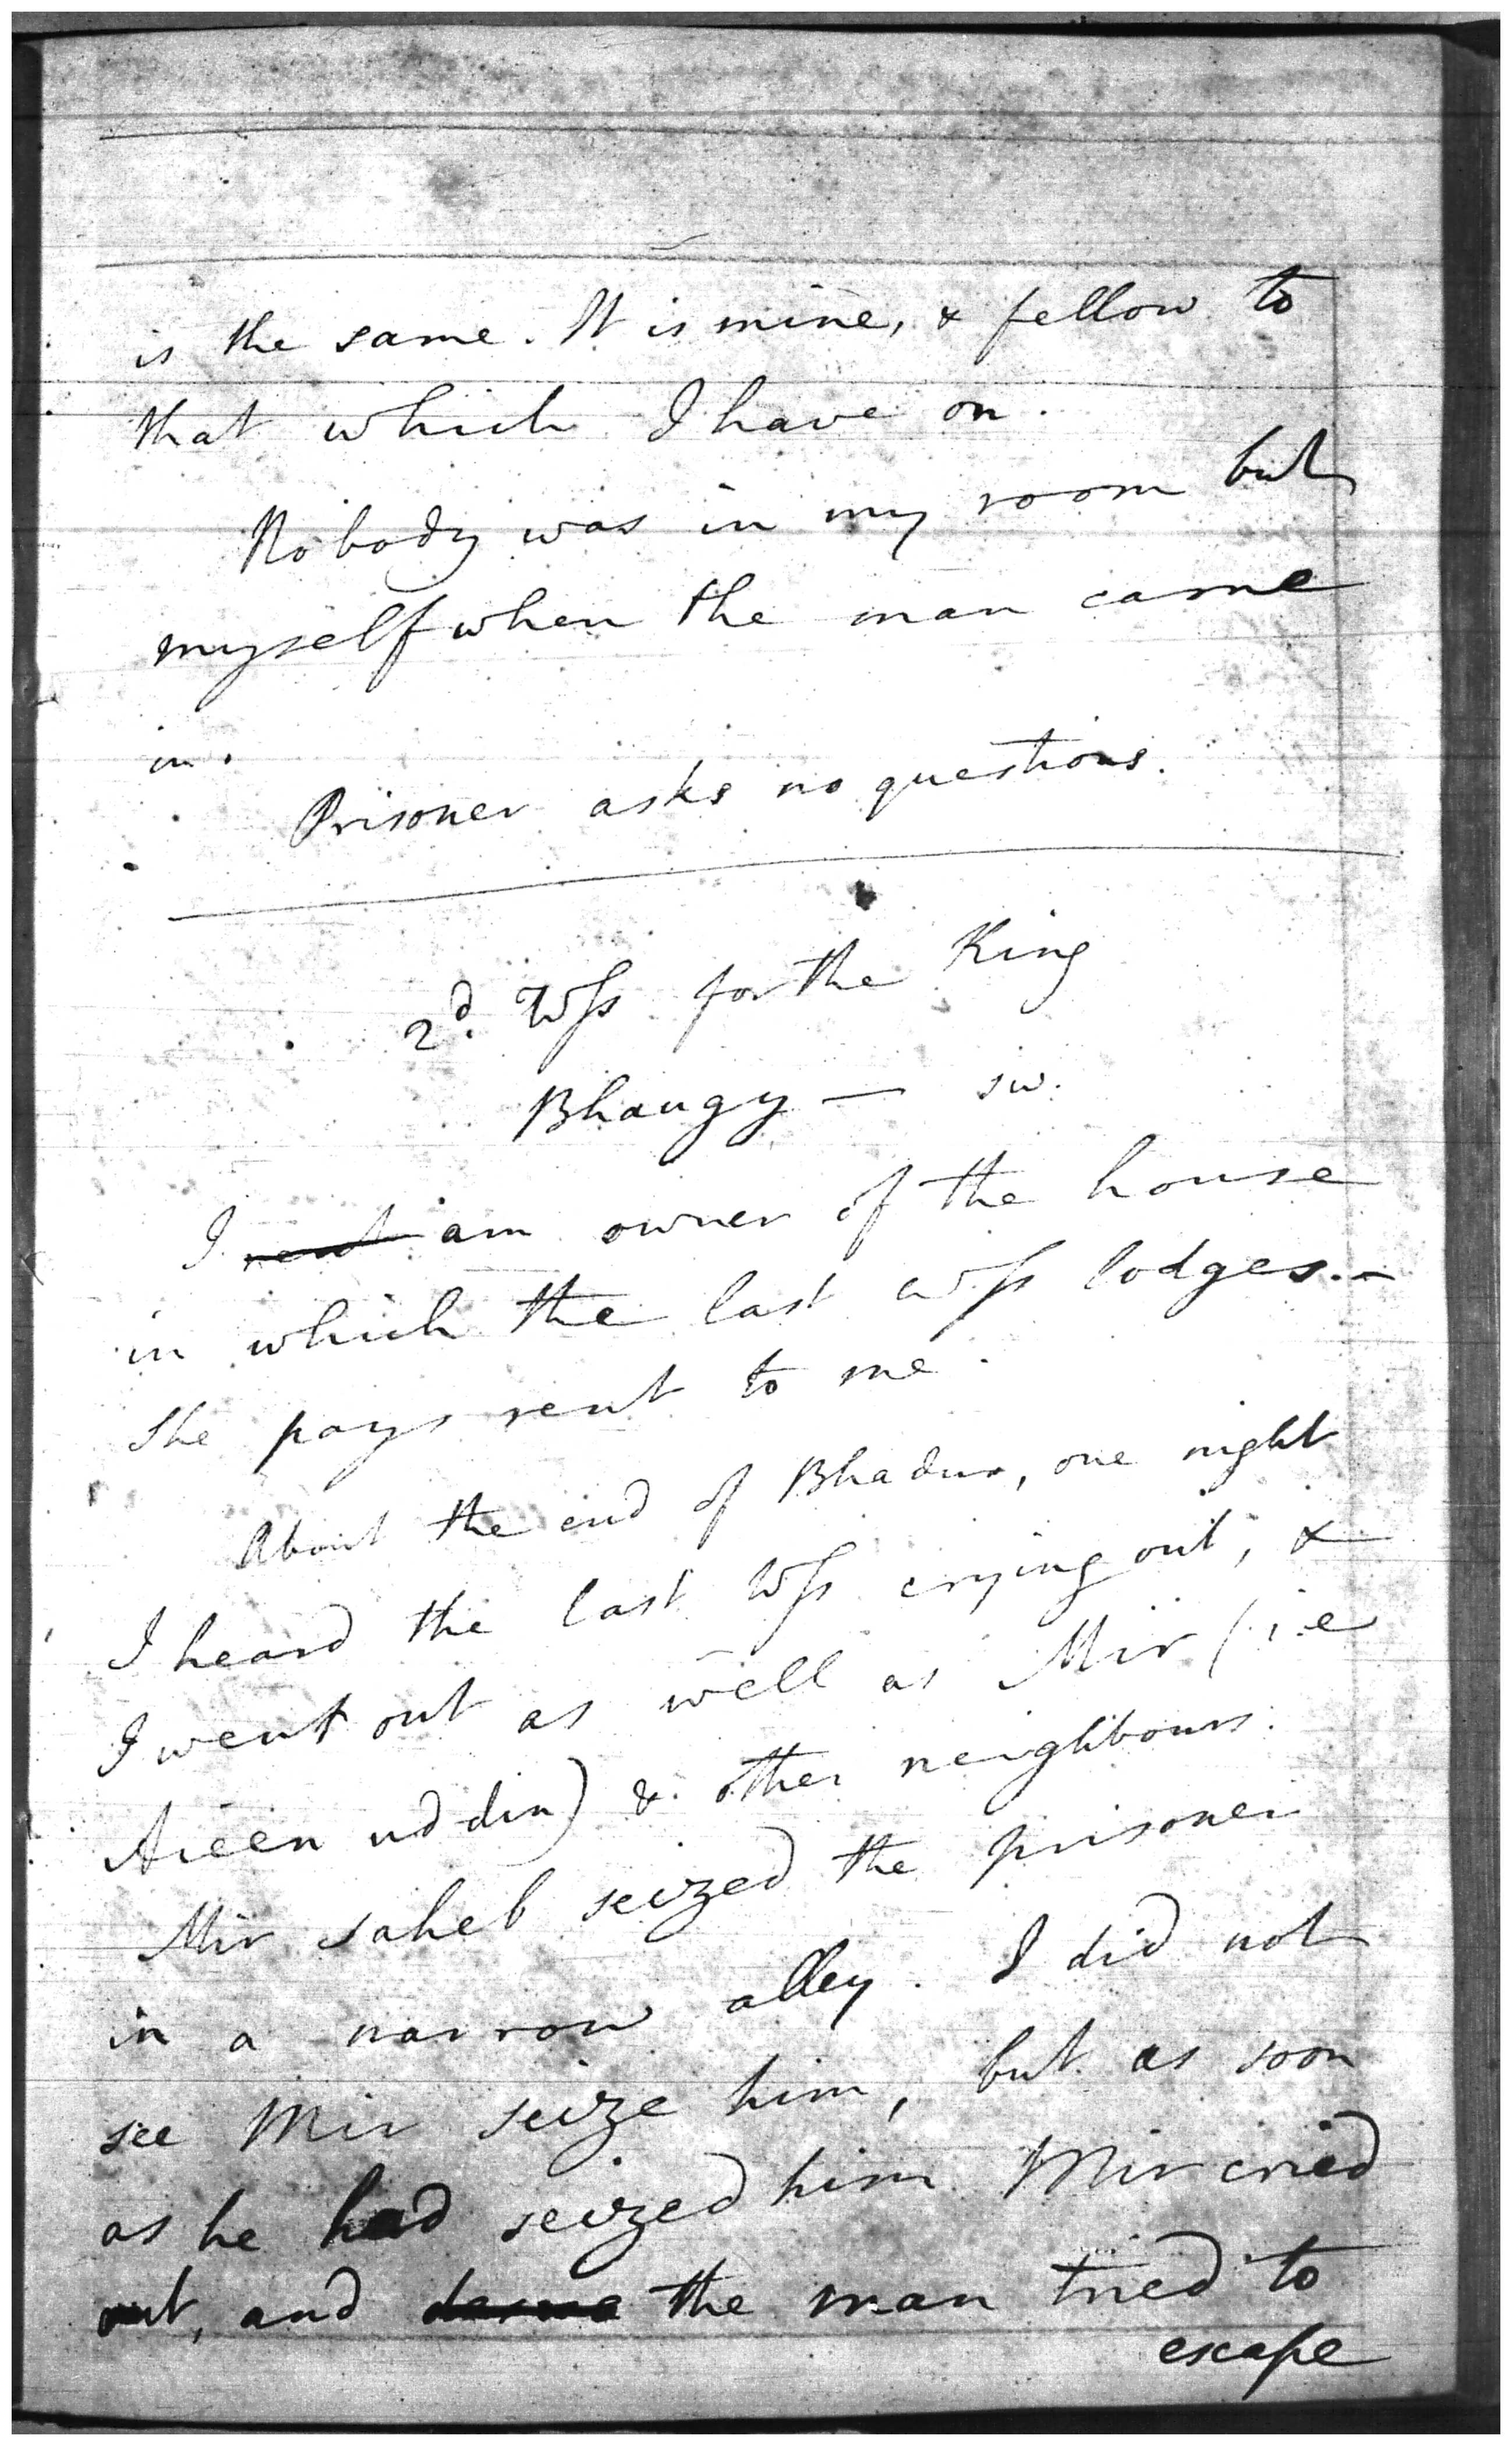 is the same. It is mine, & fellow to
that which I have on.
Nobody was in my room but
myself when the man came
in.
Prisoner asks no questions.
2d. Wss for the King
Bhaugy — sw.
I rent am owner of the house
in which the last wss lodges.—
She pays rent to me.
About the end of Bhadur, one night
I heard the last Wss crying out, &
I went out as well as Mir (i.e
Aieen ud-din) & other neighbours.
Mir saheb seized the prisoner
in a narrow alley. I did not
see Mir seize him, but as soon
as he had seized him Mir cried
out, and the man tried to
escape